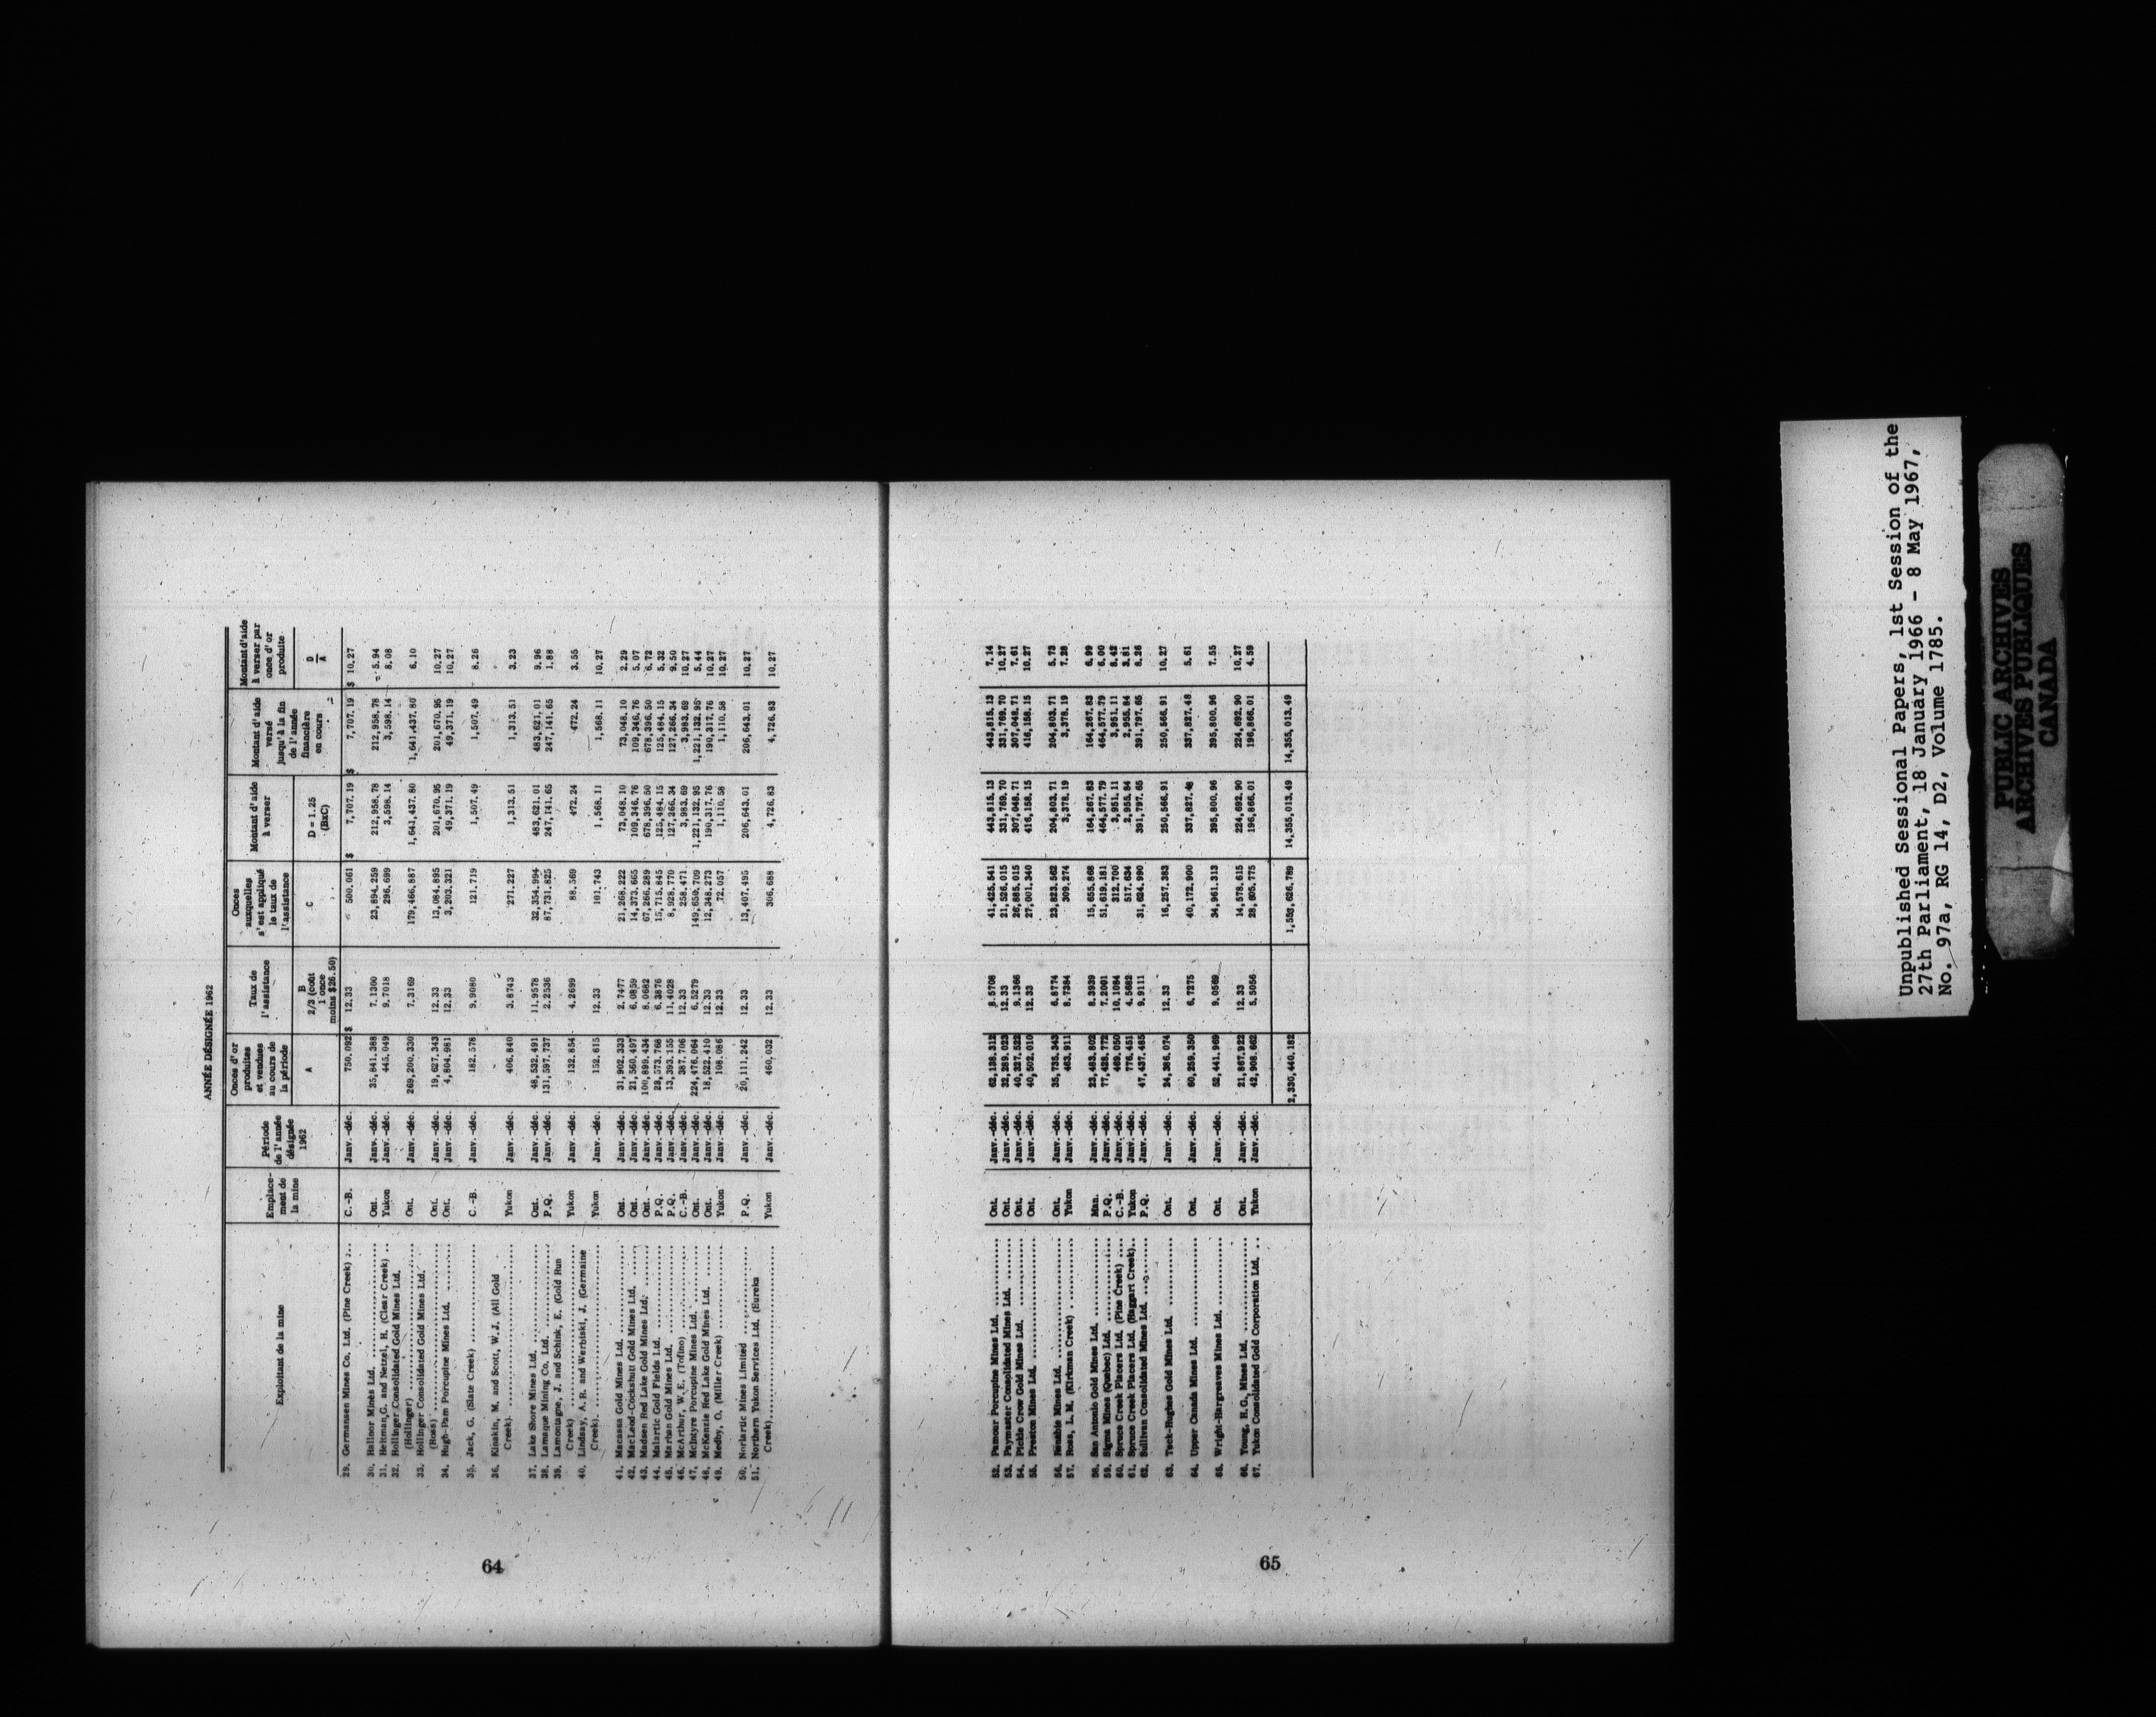 ANNÉE DÉSIGNÉE 1962
Exploitant de la mine | Emplacement de la mine | Période de l'année désignée 1962 | Onces d'or produites et vendues au cours de la période | Taux de l'assistance | Onces auxquelles s'est appliqué le taux de l'assistance | Montant d'aide à verser | Montant d'aide versé jusqu'à la fin de l'année financière en cours | Montant d'aide à verser par once d'or produite
A | B 2/3 (coût l'once moins $26.50) | C | D = 1.25 (BxC) | D/A
29. Germansen Mines Co. Ltd. (Pine Creek) ... C.-B. Janv.-déc. 750.092 $ 12.33 500.061 $ 7,707.19 $ 7,707.19 $ 10.27
30. Hallnor Mines Ltd. Ont. Janv.-déc. 35,841.388 7.1300 23,894.259 212,958.78 212,958.78 5.94
31. Heitman, G. and Netzel, H. (Clear Creek) .. Yukon Janv.-déc. 445.049 9.7018 296.699 3,598.14 3,598.14 8.08
32. Hollinger Consolidated Gold Mines Ltd.
(Hollinger) Ont. Janv.-déc. 269,200.330 7.3169 179,466.887 1,641,437.80 1,641,437.80 6.10
33. Hollinger Consolidated Gold Mines Ltd.
(Ross) Ont. Janv.-déc. 19,627.343 12.33 13,084.895 201,670.95 201,670.95 10.27
34. Hugh-Pam Porcupine Mines Ltd. Ont. Janv.-déc. 4,804.981 12.33 3,203.321 49,371.19 49,371.19 10.27
35. Jack, G. (Slate Creek) C.-B. Janv.-déc. 182.578 9.9080 121.719 1,507.49 1,507.49 8.26
36. Kinakin, M. and Scott, W.J. (All Gold
Creek) Yukon Janv.-déc. 406.840 3.8743 271.227 1,313.51 1,313.51 3.23
37. Lake Shore Mines Ltd. Ont. Janv.-déc. 48,532.491 11.9578 32,354.994 483,621.01 483,621.01 9.96
38. Lamaque Mining Co. Ltd. P.Q. Janv.-déc. 131,597.737 2.2536 87,731.825 247,141.65 247,141.65 1.88
39. Lamontagne, J. and Schink, E. (Gold Run
Creek) Yukon Janv.-déc. 132.854 4.2699 88.569 472.24 472.24 3.55
40. Lindsay, A.R. and Werbiski, J. (Germaine
Creek) Yukon Janv.-déc. 152.615 12.33 101.743 1,568.11 1,568.11 10.27
41. Macassa Gold Mines Ltd. Ont. Janv.-déc. 31,902.333 2.7477 21,268.222 73,048.10 73,048.10 2.29
42. MacLeod-Cockshutt Gold Mines Ltd. Ont. Janv.-déc. 21,560.497 6.0859 14,373.665 109,346.76 109,346.76 5.07
43. Madsen Red Lake Gold Mines Ltd. Ont. Janv.-déc. 100,899.434 8.0682 67,266.289 678,396.50 678,396.50 6.72
44. Malartic Gold Fields Ltd. P.Q. Janv.-déc. 23,573.768 6.3876 15,715.845 125,484.15 125,484.15 5.32
45. Marban Gold Mines Ltd. P.Q. Janv.-déc. 13,393.155 11.4028 8,928.770 127,266.34 127,266.34 9.50
46. McArthur, W.E. (Tofino) C.-B. Janv.-déc. 387.706 12.33 258.471 3,983.69 3,983.69 10.27
47. McIntyre Porcupine Mines Ltd. Ont. Janv.-déc. 224,476.064 6.5279 149,650.709 1,221,132.95 1,221,132.95 5.44
48. McKenzie Red Lake Gold Mines Ltd. Ont. Janv.-déc. 18,522.410 12.33 12,348.273 190,317.76 190,317.76 10.27
49. Medby, O. (Miller Creek) Yukon Janv.-déc. 108.086 12.33 72.057 1,110.58 1,110.58 10.27
50. Norlartic Mines Limited P.Q. Janv.-déc. 20,111.242 12.33 13,407.495 206,643.01 206,643.01 10.27
51. Northern Yukon Services Ltd. (Eureka
Creek) Yukon Janv.-déc. 460.032 12.33 306.688 4,726.83 4,726.83 10.27
64
52. Pamour Porcupine Mines Ltd. Ont. Janv.-déc. 62,138.312 8.5708 41,425.541 443,815.13 443,815.13 7.14
53. Paymaster Consolidated Mines Ltd. Ont. Janv.-déc. 32,289.023 12.33 21,526.015 331,769.70 331,769.70 10.27
54. Pickle Crow Gold Mines Ltd. Ont. Janv.-déc. 40,327.522 9.1366 26,885.015 307,048.71 307,048.71 7.61
55. Preston Mines Ltd. Ont. Janv.-déc. 40,502.010 12.33 27,001.340 416,158.15 416,158.15 10.27
56. Renabie Mines Ltd. Ont. Janv.-déc. 35,735.343 6.8774 23,823.562 204,803.71 204,803.71 5.73
57. Ross, L.M. (Kirkman Creek) Yukon Janv.-déc. 463.911 8.7384 309.274 3,378.19 3,378.19 7.28
58. San Antonio Gold Mines Ltd. Man. Janv.-déc. 23,483.802 8.3939 15,655.868 164,267.83 164,267.83 6.99
59. Sigma Mines (Quebec) Ltd. P.Q. Janv.-déc. 77,428.772 7.2001 51,619.181 464,577.79 464,577.79 6.00
60. Spruce Creek Placers Ltd. (Pine Creek) C.-B. Janv.-déc. 469.050 10.1084 312.700 3,951.11 3,951.11 8.42
61. Spruce Creek Placers Ltd. (Haggart Creek).. Yukon Janv.-déc. 776.451 4.5682 517.634 2,955.84 2,955.84 3.81
62. Sullivan Consolidated Mines Ltd. P.Q. Janv.-déc. 47,437.485 9.9111 31,624.990 391,797.65 391,797.65 8.26
63. Teck-Hughes Gold Mines Ltd. Ont. Janv.-déc. 24,386.074 12.33 16,257.383 250,566.91 250,566.91 10.27
64. Upper Canada Mines Ltd. Ont. Janv.-déc. 60,259.350 6.7275 40,172.900 337,827.48 337,827.48 5.61
65. Wright-Hargreaves Mines Ltd. Ont. Janv.-déc. 52,441.969 9.0569 34,961.313 395,800.96 395,800.96 7.55
66. Young, H.G., Mines Ltd. Ont. Janv.-déc. 21,867.922 12.33 14,578.615 224,692.90 224,692.90 10.27
67. Yukon Consolidated Gold Corporation Ltd. .. Yukon Janv.-déc. 42,908.662 5.5056 28,605.775 196,866.01 196,866.01 4.59
2,330,440.182 1,553,626.789 14,355,013.49 14,355,013.49
65
Unpublished Sessional Papers, 1st Session of the
27th Parliament, 18 January 1966 - 8 May 1967,
No. 97a, RG 14, D2, Volume 1785.
PUBLIC ARCHIVES
ARCHIVES PUBLIQUES
CANADA